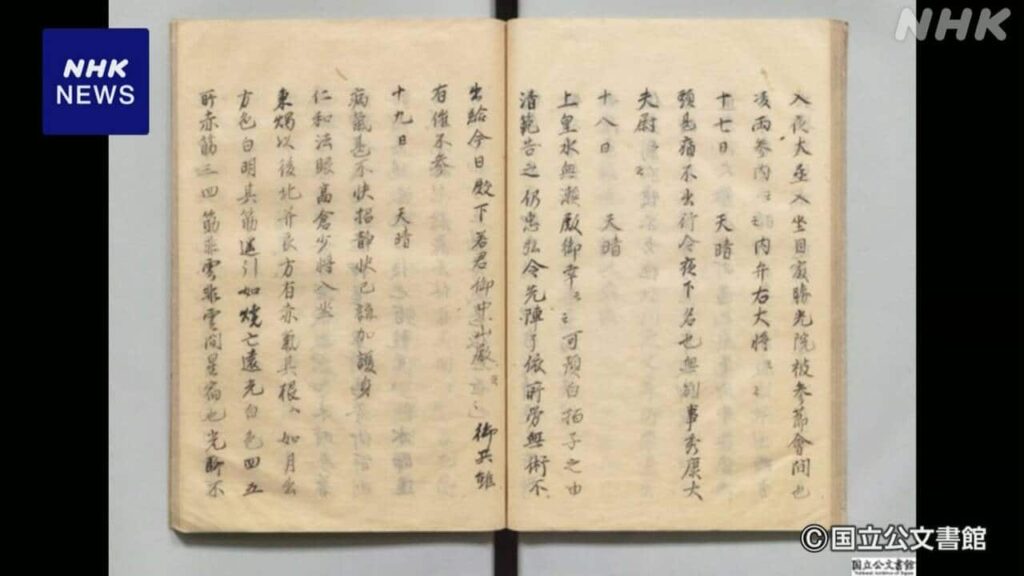 NHK
NEWS
NHK
入夜大丞入坐目最勝光院被参節會間也
凌雨参内 内弁右大将
十七日 天晴
頭甚痛不出行今夜下名也無別事秀康大
夫尉
十八日 天晴
上皇水無瀬殿御幸 可預白拍子之由
清範告之仍忠弘令先陣了依所労無術不
出給今日殿下若君御 山厳 御共雄
有催不参
十九日 天晴
病気甚不快招静状已講加護身
仁和法眼高倉少将入坐
秉燭以後北并艮方有赤気其根ハ如月出
方色白明其筋遥引如焼亡遠光白色四五
所赤筋三四筋非雲非雲間星宿也光聊不
©国立公文書館
国立公文書館